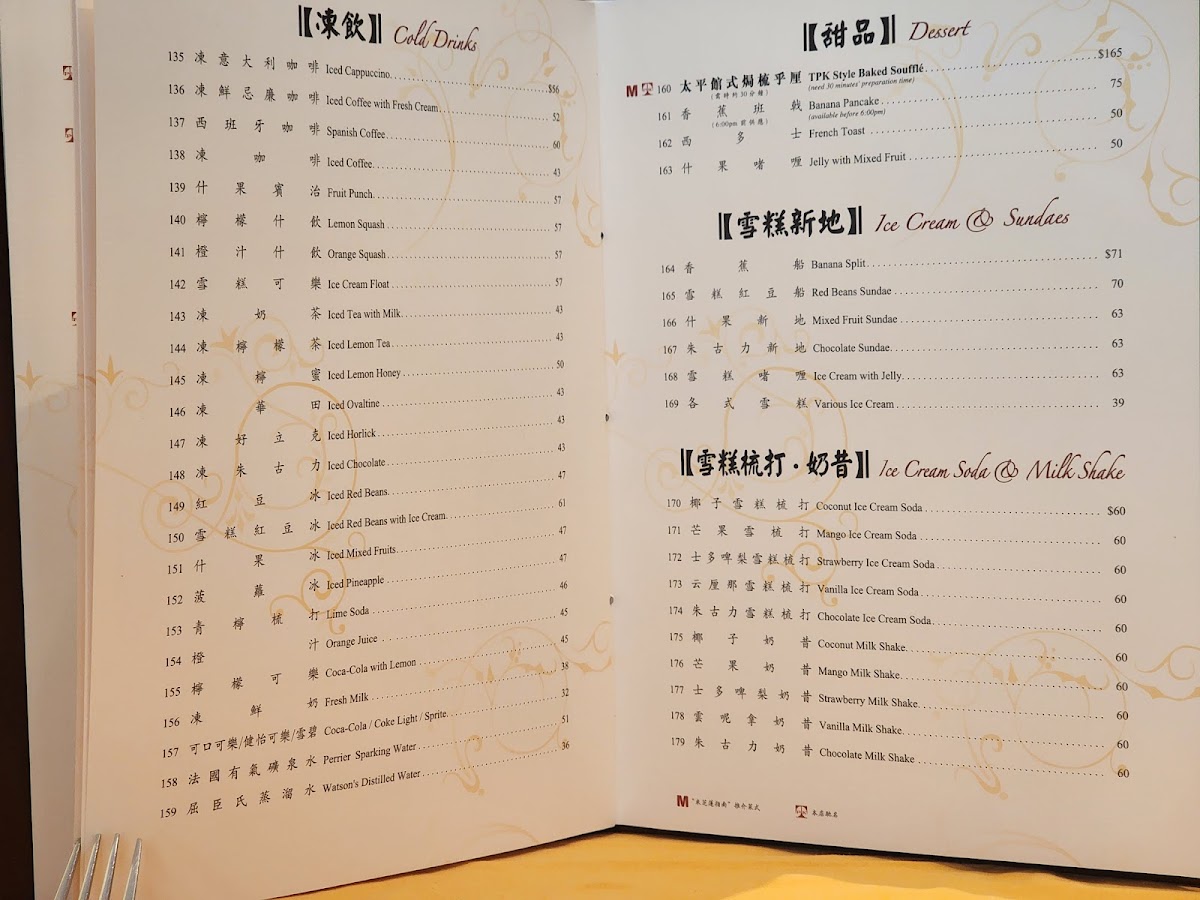 【凍飲】 Cold Drinks
135 凍意大利咖啡 Iced Cappuccino $56
136 凍鮮忌廉咖啡 Iced Coffee with Fresh Cream 52
137 西班牙咖啡 Spanish Coffee 60
138 凍咖啡 Iced Coffee 43
139 什果賓治 Fruit Punch 57
140 檸檬什飲 Lemon Squash 57
141 橙汁什飲 Orange Squash 57
142 雪糕可樂 Ice Cream Float 57
143 凍奶茶 Iced Tea with Milk 43
144 凍檸檬茶 Iced Lemon Tea 43
145 凍檸蜜 Iced Lemon Honey 50
146 凍華田 Iced Ovaltine 43
147 凍好立克 Iced Horlick 43
148 凍朱古力 Iced Chocolate 43
149 紅豆冰 Iced Red Beans 47
150 雪糕紅豆冰 Iced Red Beans with Ice Cream 61
151 什果冰 Iced Mixed Fruits 47
152 菠蘿冰 Iced Pineapple 47
153 青檸梳打 Lime Soda 46
154 橙汁 Orange Juice 45
155 檸檬可樂 Coca-Cola with Lemon 45
156 凍鮮奶 Fresh Milk 38
157 可口可樂/健怡可樂/雪碧 Coca-Cola / Coke Light / Sprite 32
158 法國有氣礦泉水 Perrier Sparking Water 51
159 屈臣氏蒸溜水 Watson's Distilled Water 36
【甜品】 Dessert
M 160 太平館式焗梳乎厘 TPK Style Baked Soufflé $165
(需時約30分鐘) (need 30 minutes' preparation time)
161 香蕉班戟 Banana Pancake 75
(6:00pm 前供應) (available before 6:00pm)
162 西多士 French Toast 50
163 什果啫喱 Jelly with Mixed Fruit 50
【雪糕新地】 Ice Cream & Sundaes
164 香蕉船 Banana Split $71
165 雪糕紅豆船 Red Beans Sundae 70
166 什果新地 Mixed Fruit Sundae 63
167 朱古力新地 Chocolate Sundae 63
168 雪糕啫喱 Ice Cream with Jelly 63
169 各式雪糕 Various Ice Cream 39
【雪糕梳打·奶昔】 Ice Cream Soda & Milk Shake
170 椰子雪糕梳打 Coconut Ice Cream Soda $60
171 芒果雪梳打 Mango Ice Cream Soda 60
172 士多啤梨雪糕梳打 Strawberry Ice Cream Soda 60
173 云厘那雪糕梳打 Vanilla Ice Cream Soda 60
174 朱古力雪糕梳打 Chocolate Ice Cream Soda 60
175 椰子奶昔 Coconut Milk Shake 60
176 芒果奶昔 Mango Milk Shake 60
177 士多啤梨奶昔 Strawberry Milk Shake 60
178 雲呢拿奶昔 Vanilla Milk Shake 60
179 朱古力奶昔 Chocolate Milk Shake 60
M "米芝蓮指南" 推介菜式 本店馳名